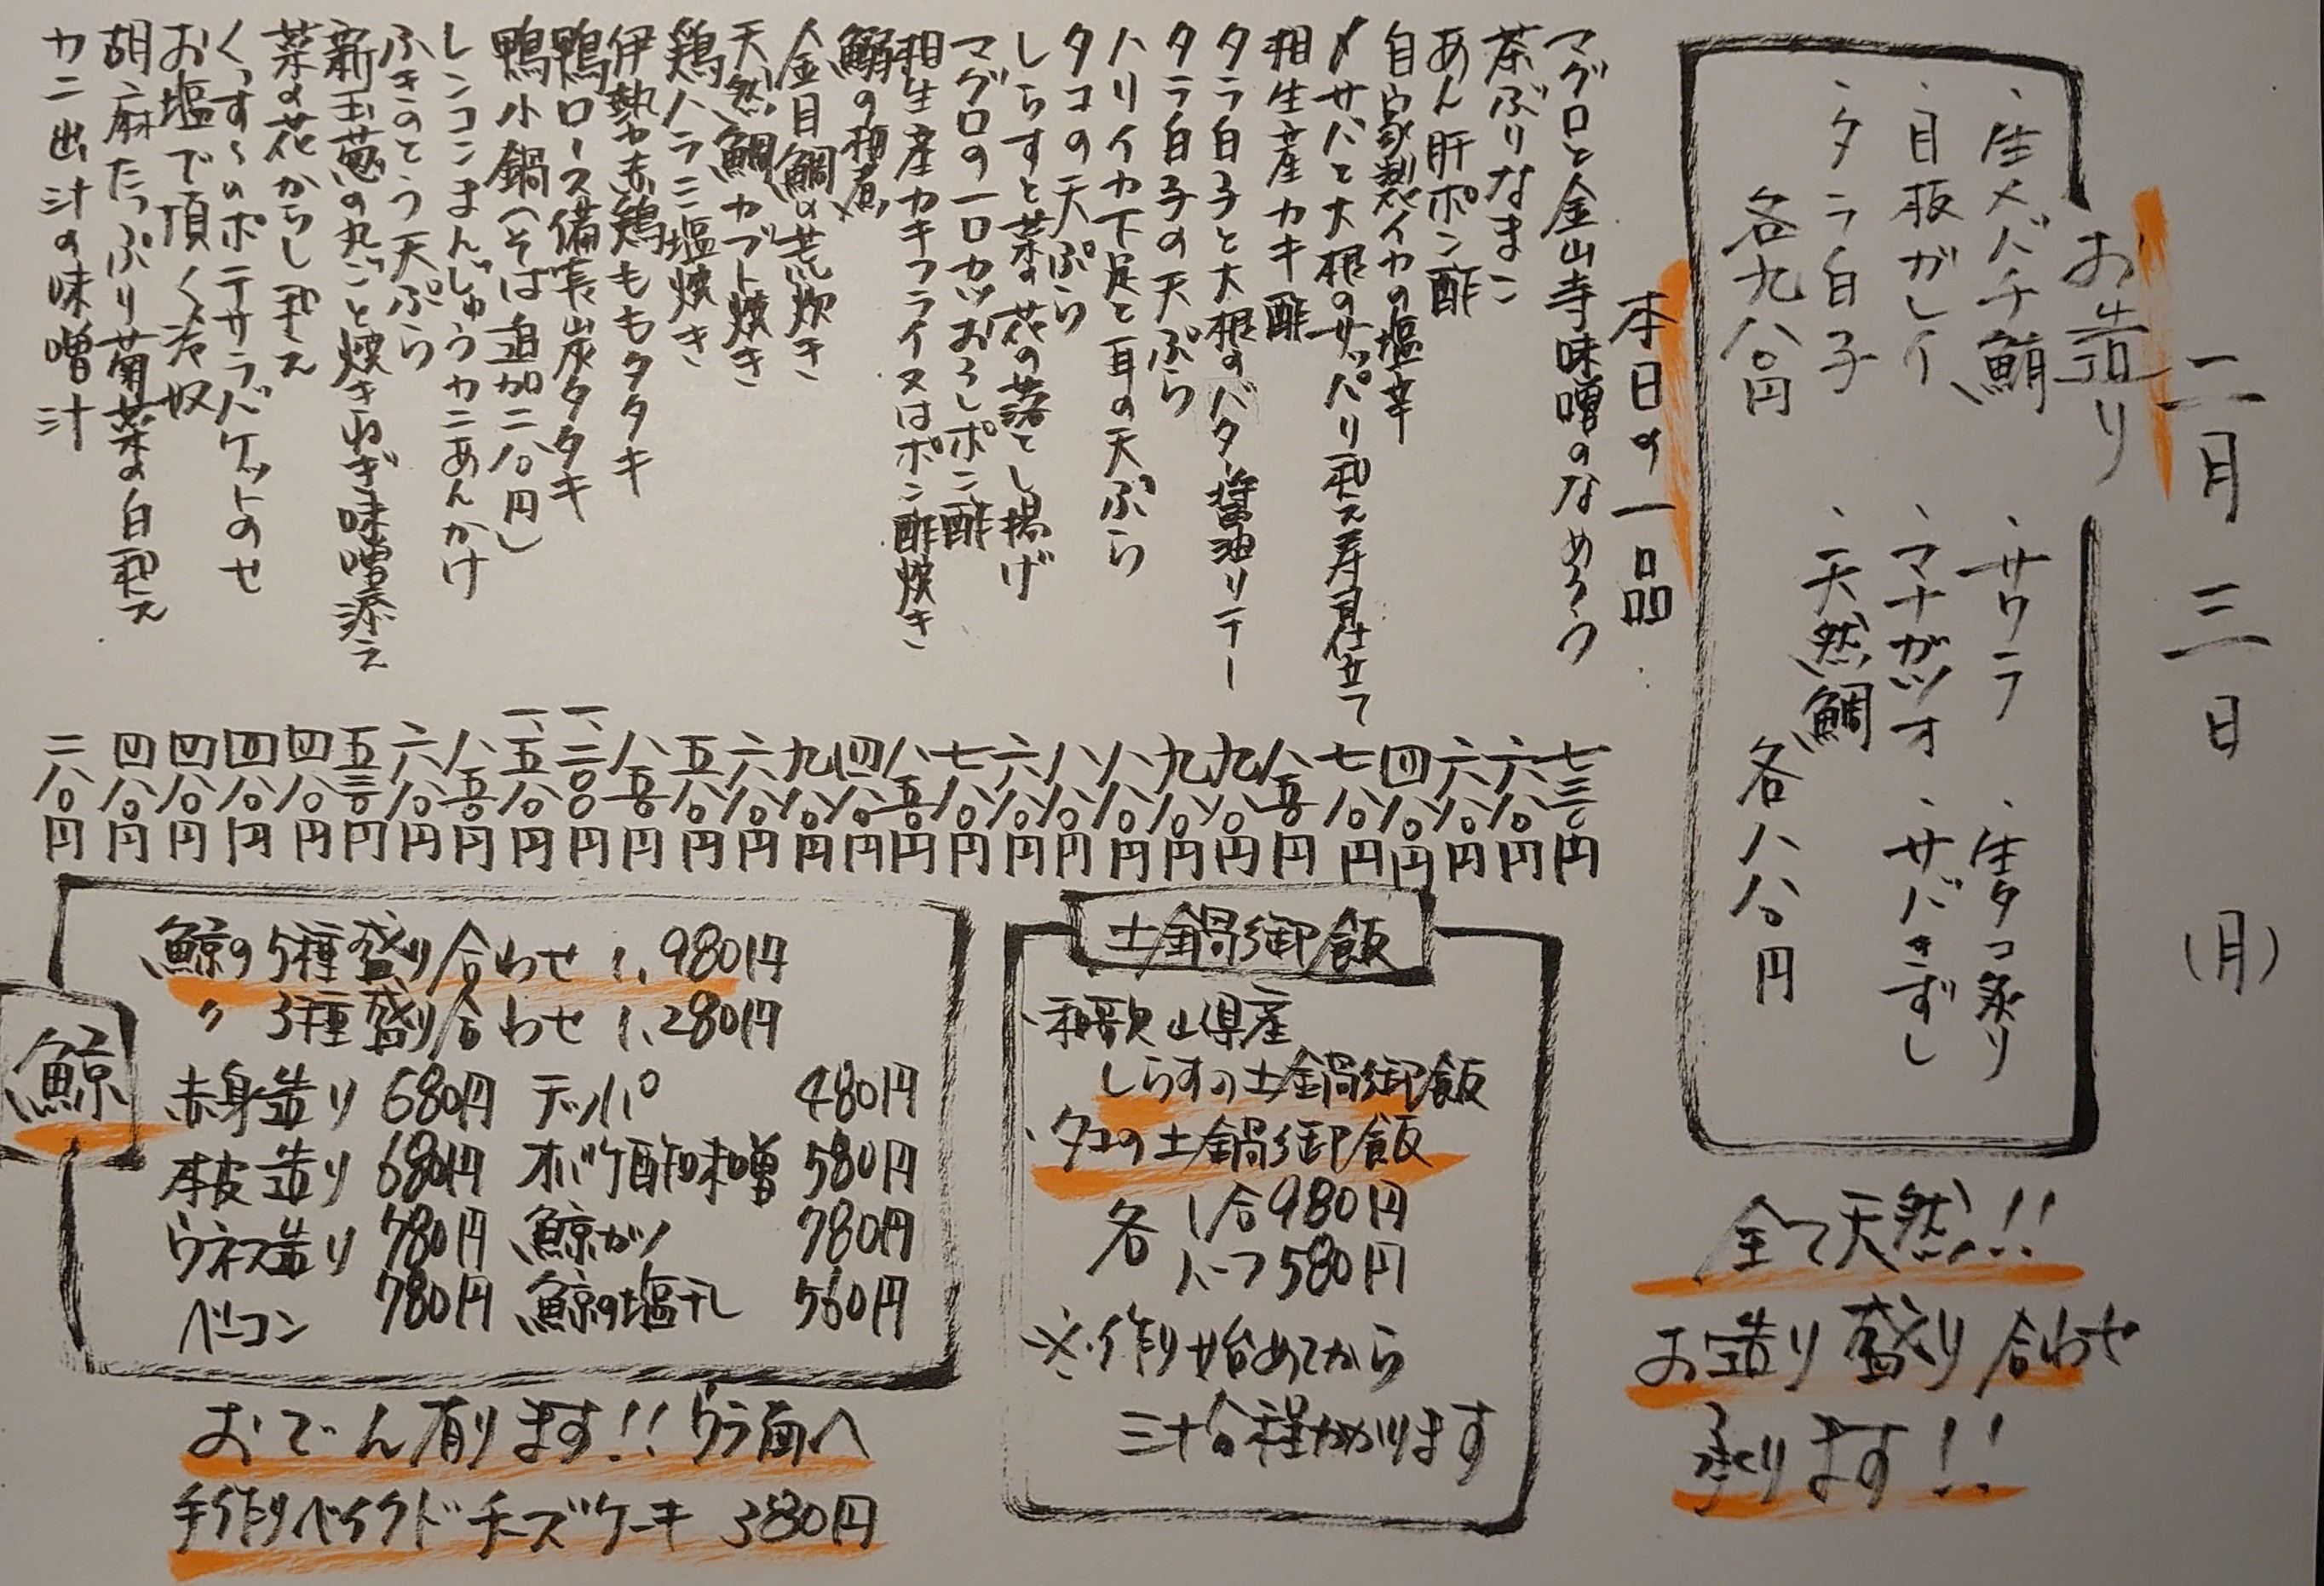 二月三日(月)
お造り
・生メバチ鮪
・サワラ
・生タコ炙り
・目板ガレイ
・マナガツオ
・サバきずし
・タラ白子
・天然鯛
各九八〇円
各八八〇円
全て天然!!
お造り盛り合わせ
承ります!!
本日の一品
マグロと金山寺味噌のなめろう 七三〇円
茶ぶりなまこ 六八〇円
あん肝ポン酢 六八〇円
自家製イカの塩辛 四八〇円
〆サバと大根のサッパリ和え寿司仕立て 七八〇円
相生産カキ酢 八五〇円
タラ白子と大根のバター醤油ソテー 九八〇円
タラ白子の天ぷら 九八〇円
ハリイカ下足と耳の天ぷら 八八〇円
タコの天ぷら 八八〇円
しらすと菜の花の落とし揚げ 六八〇円
マグロの一口カツおろしポン酢 七八〇円
相生産カキフライ又はポン酢焼き 八五〇円
鰯の梅煮 四八〇円
金目鯛の荒炊き 九八〇円
天然鯛カブト焼き 六八〇円
鶏ハラミ塩焼き 五八〇円
伊勢赤鶏ももタタキ 八五〇円
鴨ロース備長炭タタキ 一、二〇〇円
鴨小鍋(そば追加二八〇円) 一、五八〇円
レンコンまんじゅうカニあんかけ 八五〇円
ふきのとう天ぷら 六八〇円
新玉葱の丸ごと焼きねぎ味噌添え 五三〇円
菜の花からし和え 四八〇円
くっすんのポテサラバケットのせ 四八〇円
お塩で頂く冷奴 四八〇円
胡麻たっぷり菊菜の白和え 四八〇円
カニ出汁の味噌汁 二八〇円
土鍋御飯
・和歌山県産
しらすの土鍋御飯
・タコの土鍋御飯
各 1合980円
ハーフ580円
※作り始めてから
三十分程かかります
鯨
鯨の5種盛り合わせ 1,980円
〃 3種盛り合わせ 1,280円
赤身造り 680円 テッパ 480円
本皮造り 680円 オバケ酢味噌 580円
ウネス造り 780円 鯨カツ 780円
ベーコン 780円 鯨の塩干し 560円
おでん有ります!!ウラ面へ
手作りベイクドチーズケーキ 380円